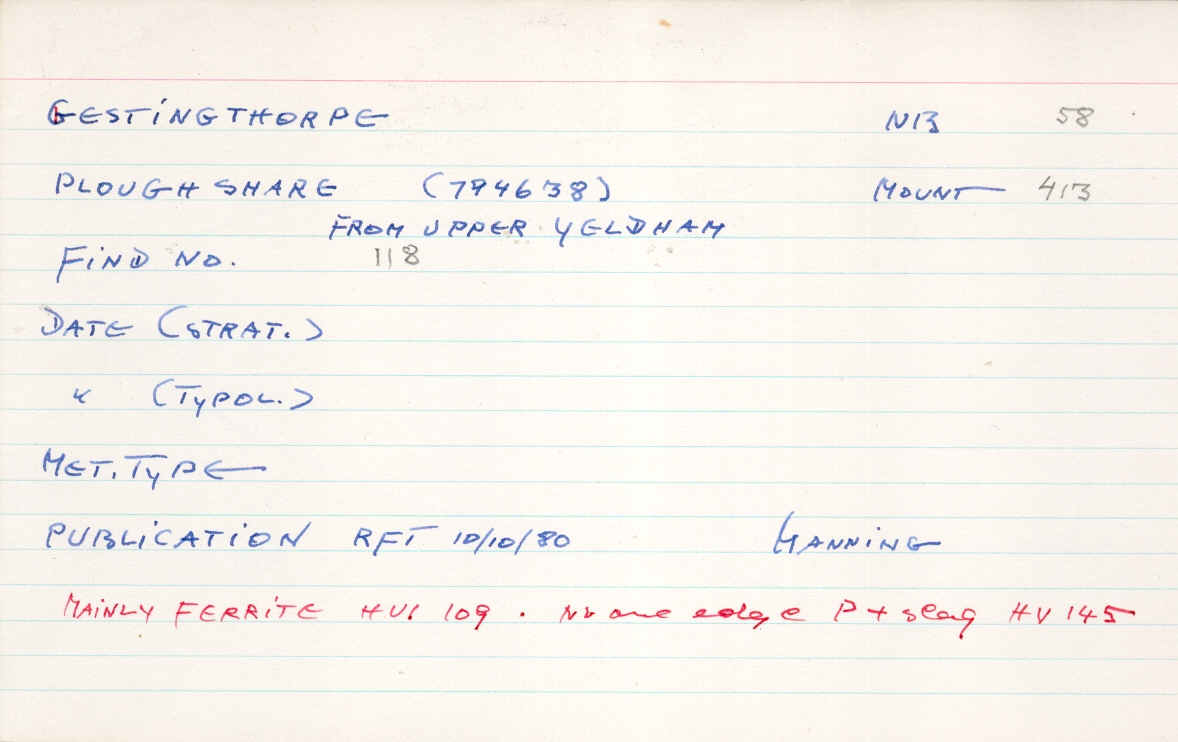 GESTINGTHORPE NB 58
PLOUGH SHARE (794638) MOUNT 413
FROM UPPER YELDHAM
FIND NO. 118
DATE (STRAT.)
" (TYPOL.)
MET. TYPE
PUBLICATION RFT 10/10/80 MANNING
MAINLY FERRITE HV1 109. Nr one edge P + slag HV 145